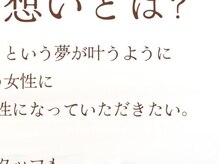 想いとは?
という夢が叶うように
女性に
性になっていただきたい。
タッフも